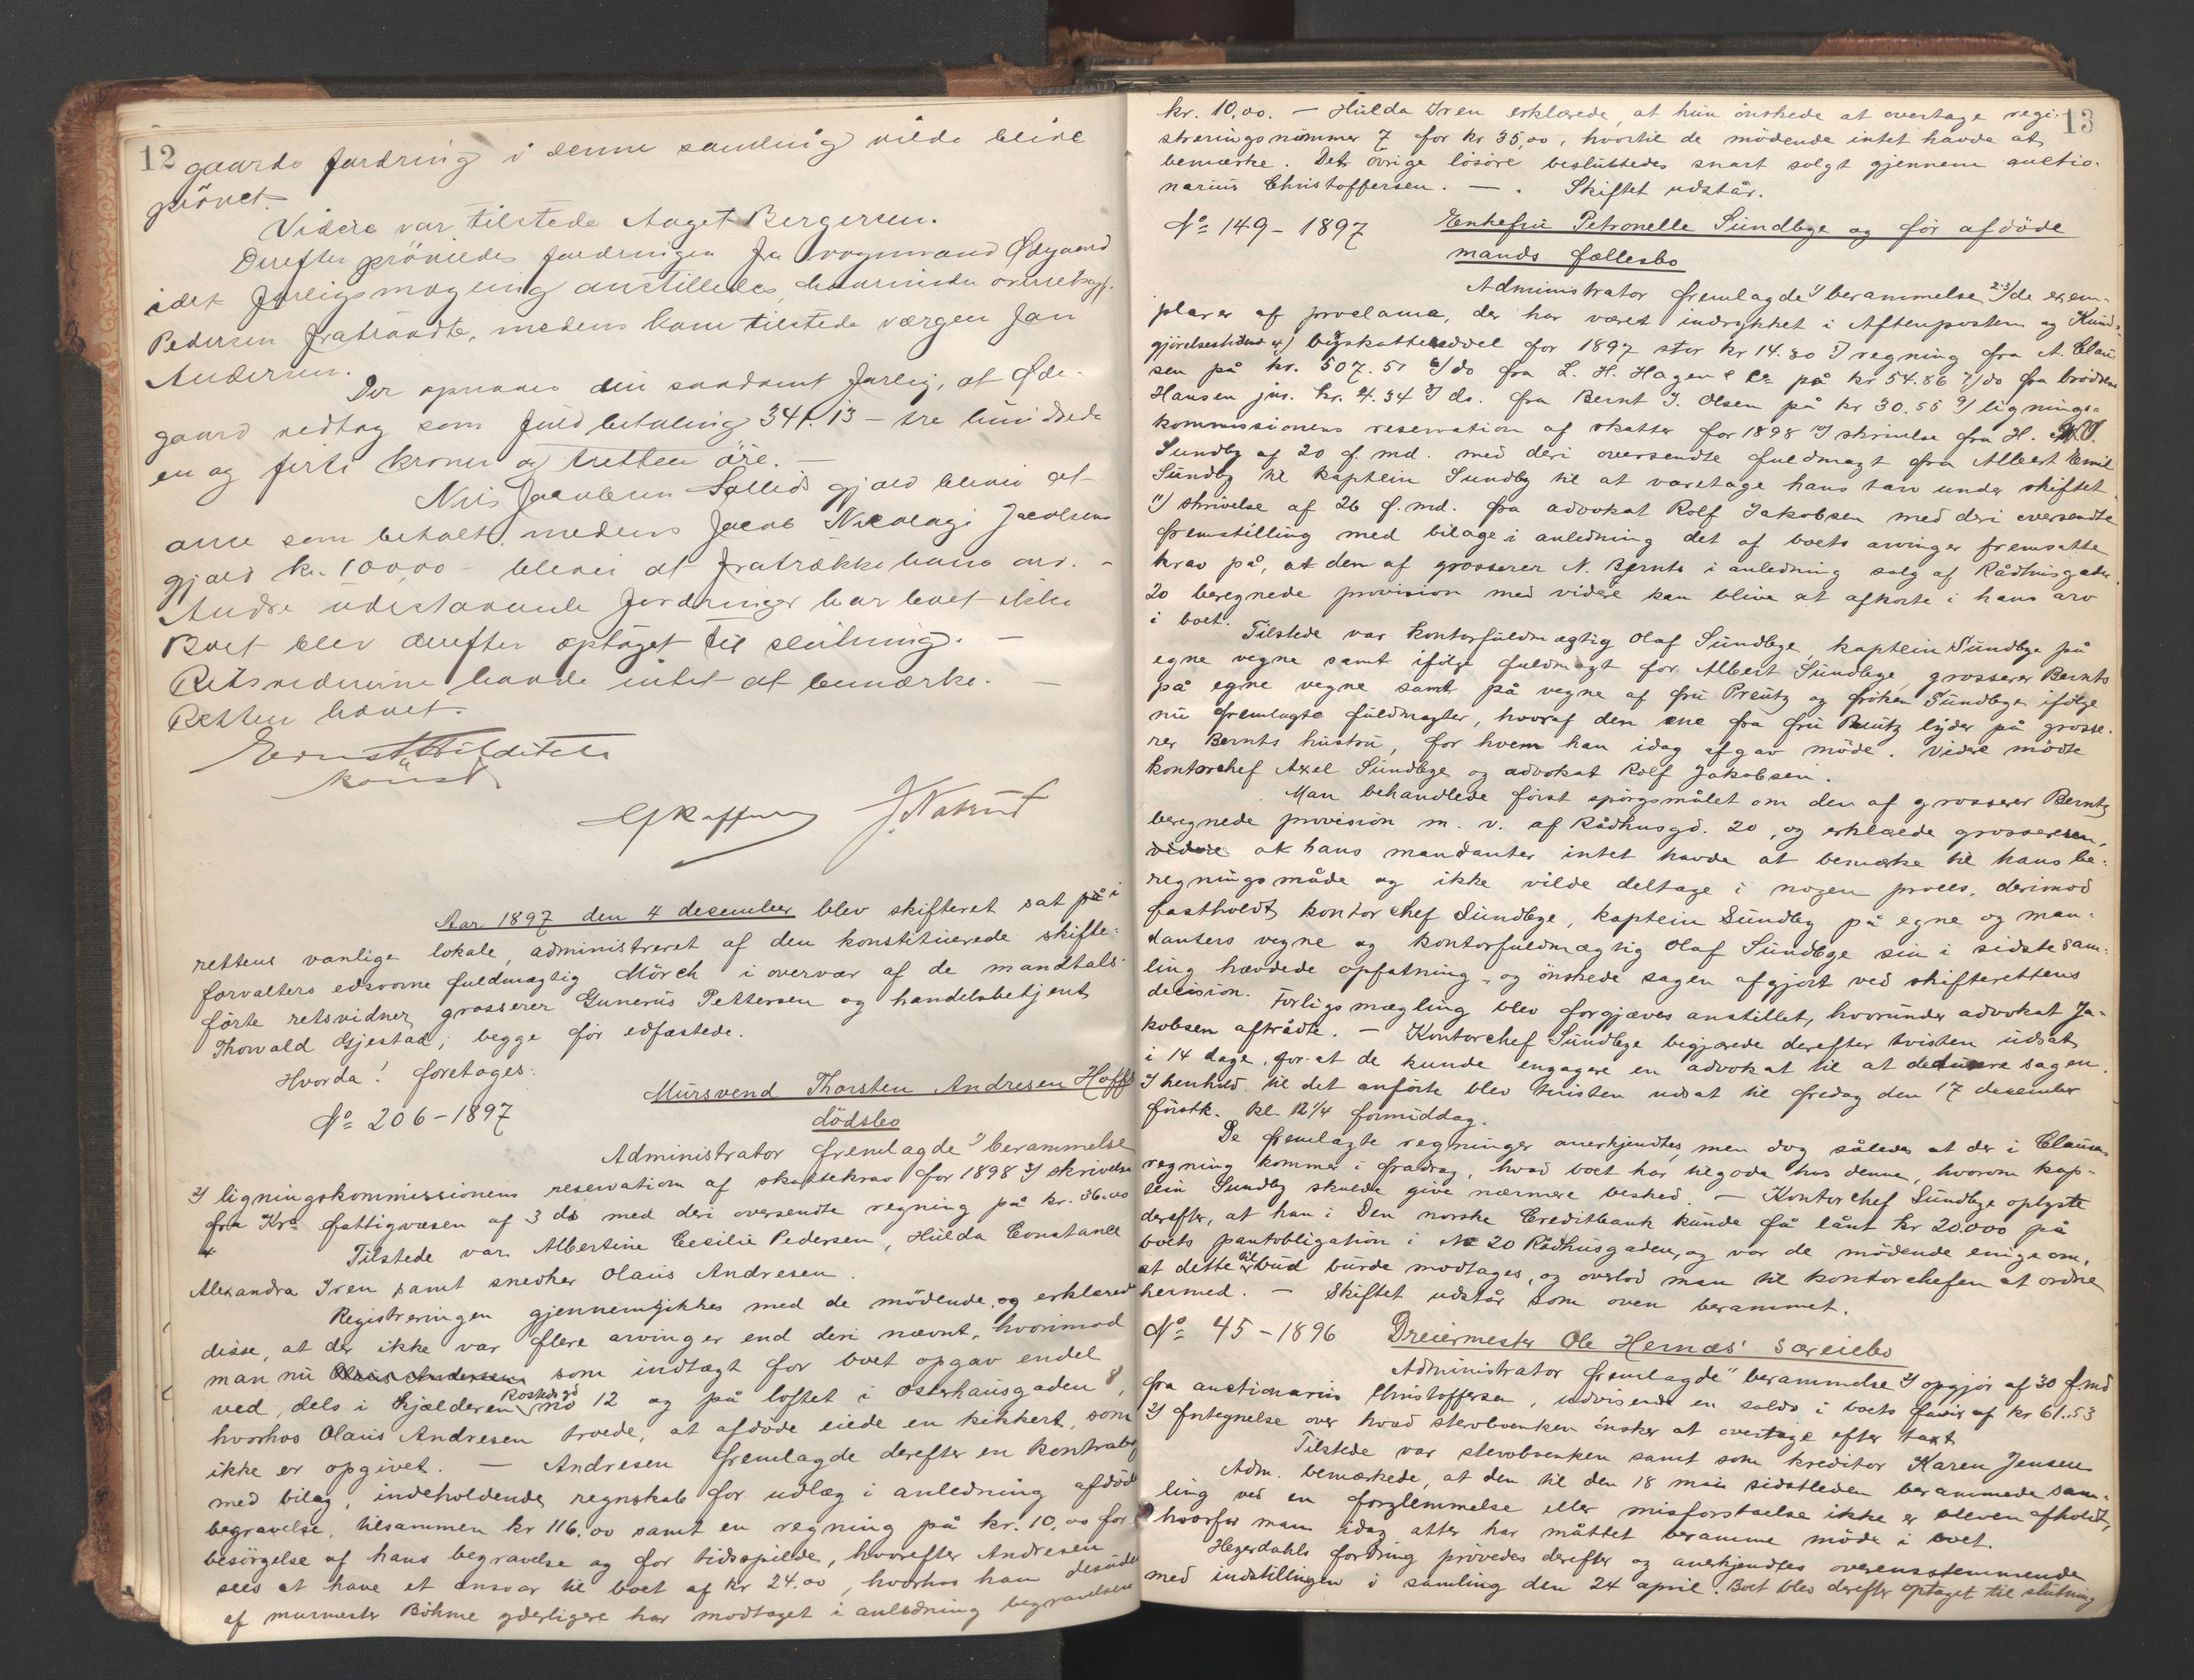 12
gaards fordring i denne samling vilde blive
prövet.
Videre var tilstede Aaget Bergersen.
Derefter prövedes fordringen fra vognmand Ødegaard
idet forligsmægling anstilledes,
Pedersen fratraadte, medens kom tilstede værgen Jan
Andersen.
Der opnaaes den saadant forlig, at Øde-
gaard vedtog som fuld betaling 341.13 – tre hundrede
en og firti kroner og tretten öre. –
Nils Jacobsen Sollids gjæld blive at
anse som betalt, medens Jacob Nicolay Jacobsens
gjæld kr. 100,00 – bliver at fratrække hans arv. –
Andre udestaaende fordringer har boet ikke
Boet blev derefter optaget til slutning. –
Retsvidnerne havde intet at bemærke. –
Retten hævet.
konst.
Aar 1897 den 4 december blev skifteret sat på i
rettens vanlige lokale, administreret af den konstituerede skifte-
forvalters edsvorne fuldmægtig Mörch i overvær af de mandtals-
förte retsvidner, grosserer Gunerius Pettersen og handelsbetjent
Thorvald Gjestad, begge för edfæstede.
Hvorda! foretages:
No 206 – 1897
Mursvend Thorsten Andresen Hoffs
dödsbo
Administrator fremlagde 1) berammelse
2) ligningskommissionens reservation af skattekrav for 1898 3) skrivelse
fra Kra fattigvæsen af 3 ds med deri oversendte regning på kr. 36.00
Tilstede var Albertine Cecilie Pedersen, Hulda Constance
Alexandra Iren samt snedker Olaus Andresen.
Registreringen gjennemgikkes med de mödende, og erklærede
disse, at der ikke var flere arvinger end deri nævnt, hvorimod
man nu Olaus Andersen som indtægt for boet opgav endel
ved, dels i kjælderen no 12 og på loftet i Osterhausgaden 8,
hvorhos Olaus Andresen troede, at afdöde eiede en kikkert, som
ikke er opgivet. – Andresen fremlagde derefter en kontrabog
med bilag, indeholdende regnskab for udlæg i anledning afdödes
begravelse, tilsammen kr 116.00 samt en regning på kr. 10,00 for
besörgelse af hans begravelse og for tidsspilde, hvorefter Andresen
sees at have et ansvar til boet af kr 24.00, hvorhos han desuden
af murmester Böhme yderligere har modtaget i anledning begravelsen
13
kr. 10,00. – Hulda Iren erklærede, at hun önskede at overtage regi-
streringsnummer 7 for kr 35,00, hvortil de mödende intet havde at
bemærke. Det övrige lösöre besluttedes snart solgt gjennem auctio-
narius Christoffersen. – . Skiftet udstår.
No 149 – 1897 Enkefru Petronelle Sundbye og för afdöde
mands fællesbo
Administrator fremlagde 1) berammelse 2-3) de exem-
plarer af proclama, der har været indrykket i Aftenposten og Kund-
gjörelsestidende 4) byskatteseddel for 1897 stor kr 14.30 5) regning fra A. Clau
sen på kr. 507.51 6) do fra L. H. Hagen & Co på kr 54.86 7) do fra brödrene
Hansen jus. kr. 4.34 8) do. fra Bernt J. Olsen på kr 30.55 9) lignings-
kommissionens reservation af skatter for 1898 10) skrivelse fra H.
Sundby af 20 f. md. med deri oversendte fuldmagt fra Albert Emil
Sundby til kaptein Sundby til at varetage hans tarv under skiftet
11) skrivelse af 26 f. md. fra advokat Rolf Jakobsen med deri oversendte
fremstilling med bilage i anledning det af boets arvinger fremsatte
krav på, at den af grosserer N. Bernts i anledning salg af Rådhusgaden
20 beregnede provision med videre kan blive at afkorte i hans arv
i boet.
Tilstede var kontorfuldmægtig Olaf Sundbye, kaptein Sundbye på
egne vegne samt ifölge fuldmagt for Albert Sundbye, grosserer Bernts
på egne vegne samt på vegne af fru Preutz og fröken Sundbye ifölge
nu fremlagte fuldmagter, hvoraf den ene fra fru Preutz lyder på grosse-
rer Bernts hustru, for hvem han idag afgav möde. Videre mödte
kontorchef Axel Sundbye og advokat Rolf Jakobsen.
Man behandlede först spörgsmålet om den af grosserer Bernts
beregnede provision m. v. af Rådhusgd. 20, og erklærede grossereren,
videre at hans mandanter intet havde at bemærke til hans be-
regningsmåde og ikke vilde deltage i nogen proces, derimod
fastholdt kontorchef Sundbye, kaptein Sundby på egne og man-
danters vegne og kontorfuldmægtig Olaf Sundbye sin i sidste sam-
ling hævdede opfatning, og önskede sagen afgjort ved skifterettens
decision. Forligsmægling blev forgjæves anstillet, hvorunder advokat Ja-
kobsen aftrådte. – Kontorchef Sundbye begjærede derefter tvisten udsat
i 14 dage, for at de kunde engagere en advokat til at deducere sagen.
I henhold til det anförte blev tvisten udsat til fredag den 17 december
förstk. kl. 12 1/4 formiddag.
De fremlagte regninger anerkjendtes, men dog således at der i Clausens
regning kommer i fradrag, hvad boet har tilgode hos denne, hvorom kap-
tein Sundby skulde give nærmere besked. – Kontorchef Sundbye oplyste
derefter, at han i Den norske Creditbank kunde få lånt kr 20.000 på
boets pantobligation i No 20 Rådhusgaden, og var de mödende enige om,
at dette tilbud burde modtages, og overlod man til kontorchefen at ordne
hermed. – Skiftet udstår som oven berammet.
No 45 – 1896 Dreiermester Ole Hernæs' særeiebo
Administrator fremlagde 1) berammelse 2) opgjör af 30 f. md
fra auctionarius Christoffersen, udvisende en saldo i boets favör af kr 61.53
3) fortegnelse over hvad stervboenken önsker at overtage efter taxt
Tilstede var stervboenken samt som kreditor Karen Jensen
Adm. bemærkede, at den til den 18 mai sidstleden berammede sam-
ling ved en forglemmelse eller misforståelse ikke er bleven afholdt,
hvorfor man idag atter har måttet beramme möde i boet.
Heyerdahls fordring prövedes derefter og anerkjendtes overensstemmende
med indstillingen i samling den 24 april. Boet blev derefter optaget til slutning